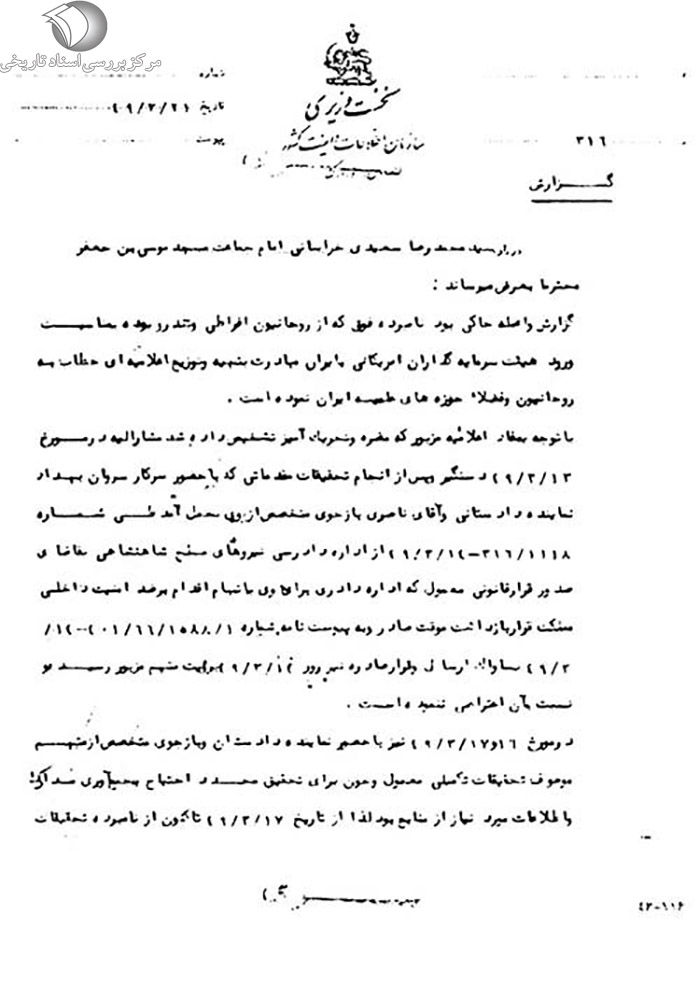 مرکز بررسی اسناد تاریخی
نخست وزیری
سازمان اطلاعات و امنیت کشور
شماره
تاریخ ۴۹/۳/۲۱
پیوست
۳۱۶
گزارش
درباره سید محمد رضا سعیدی خراسانی امام جماعت مسجد موسی بن جعفر
محترما بعرض میرساند :
گزارش واصله حاکی بود نامبرده فوق که از روحانیون افراطی و تندرو بوده بمناسبت
ورود هیئت سرمایه گذاران امریکائی بایران مبادرت بتهیه وتوزیع اعلامیه ای خطاب به
روحانیون وفضلاء حوزه های علمیه ایران نموده است .
با توجه بمفاد اعلامیه مزبور که مضره وتحریک آمیز تشخیص داده شد مشارالیه در مورخ
۴۹/۳/۱۳ دستگیر وپس از انجام تحقیقات مقدماتی که با حضور سرکار سروان بهداد
نماینده دادستانی وآقای ناصری بازجوی متخصص ازوی بعمل آمد طی شماره
۳۱۶/۱۱۱۸-۴۹/۳/۱۴ از اداره دادرسی نیروهای مسلح شاهنشاهی تقاضای
صدور قرارقانونی معمول که اداره دادرسی برای وی باتهام اقدام برضد امنیت داخلی
مملکت قراربازداشت موقت صادر وبه پیوست نامه شماره
۴۹/۳ بساواک ارسال وقرار صادره نیز روز برویت متهم مزبور رسید و
نسبت بآن اعتراضی ننموده است .
درمورخ ۱۶و۴۹/۳/۱۷ نیز با حضور نماینده دادستان وبازجوی متخصص ازمتهم
موصوف تحقیقات تکمیلی معمول وچون برای تحقیق مجدد احتیاج بجمع‌آوری مدارک
واطلاعات مورد نیاز از منابع بود لذا از تاریخ ۴۹/۳/۱۷ تاکنون از نامبرده تحقیقات
۴۲-۱۱۶